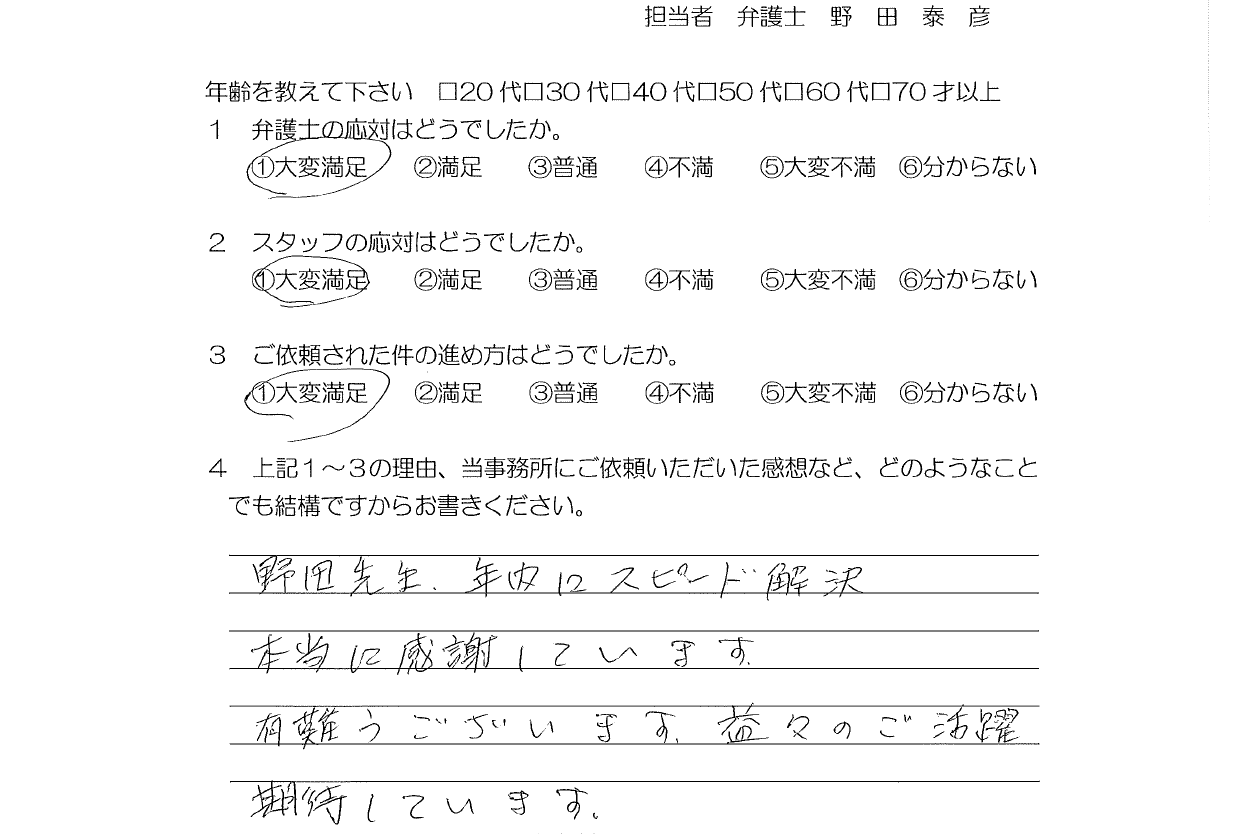 担当者　弁護士　野　田　泰　彦
年齢を教えて下さい　□20代□30代□40代□50代□60代□70才以上
１　弁護士の応対はどうでしたか。
①大変満足　②満足　③普通　④不満　⑤大変不満　⑥分からない
２　スタッフの応対はどうでしたか。
①大変満足　②満足　③普通　④不満　⑤大変不満　⑥分からない
３　ご依頼された件の進め方はどうでしたか。
①大変満足　②満足　③普通　④不満　⑤大変不満　⑥分からない
４　上記１～３の理由、当事務所にご依頼いただいた感想など、どのようなこと
でも結構ですからお書きください。
野田先生、年内にスピード解決
本当に感謝しています。
有難うございます。益々のご活躍
期待しています。